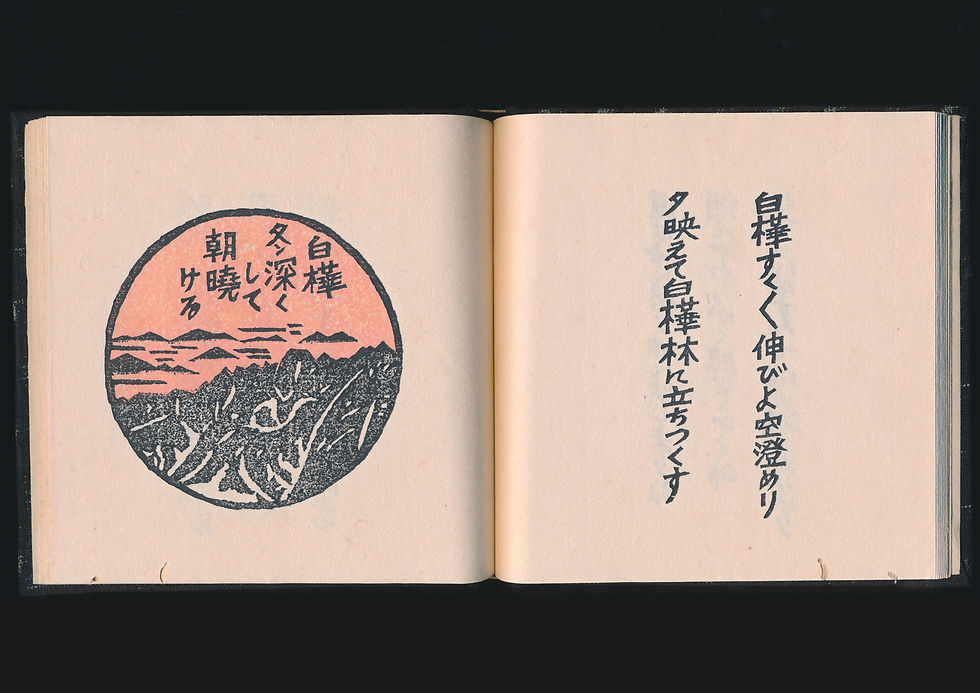 白樺すく〱伸びよ空澄めり
夕映えて白樺林に立ちつくす
白樺
冬深く
して
朝曉
ける